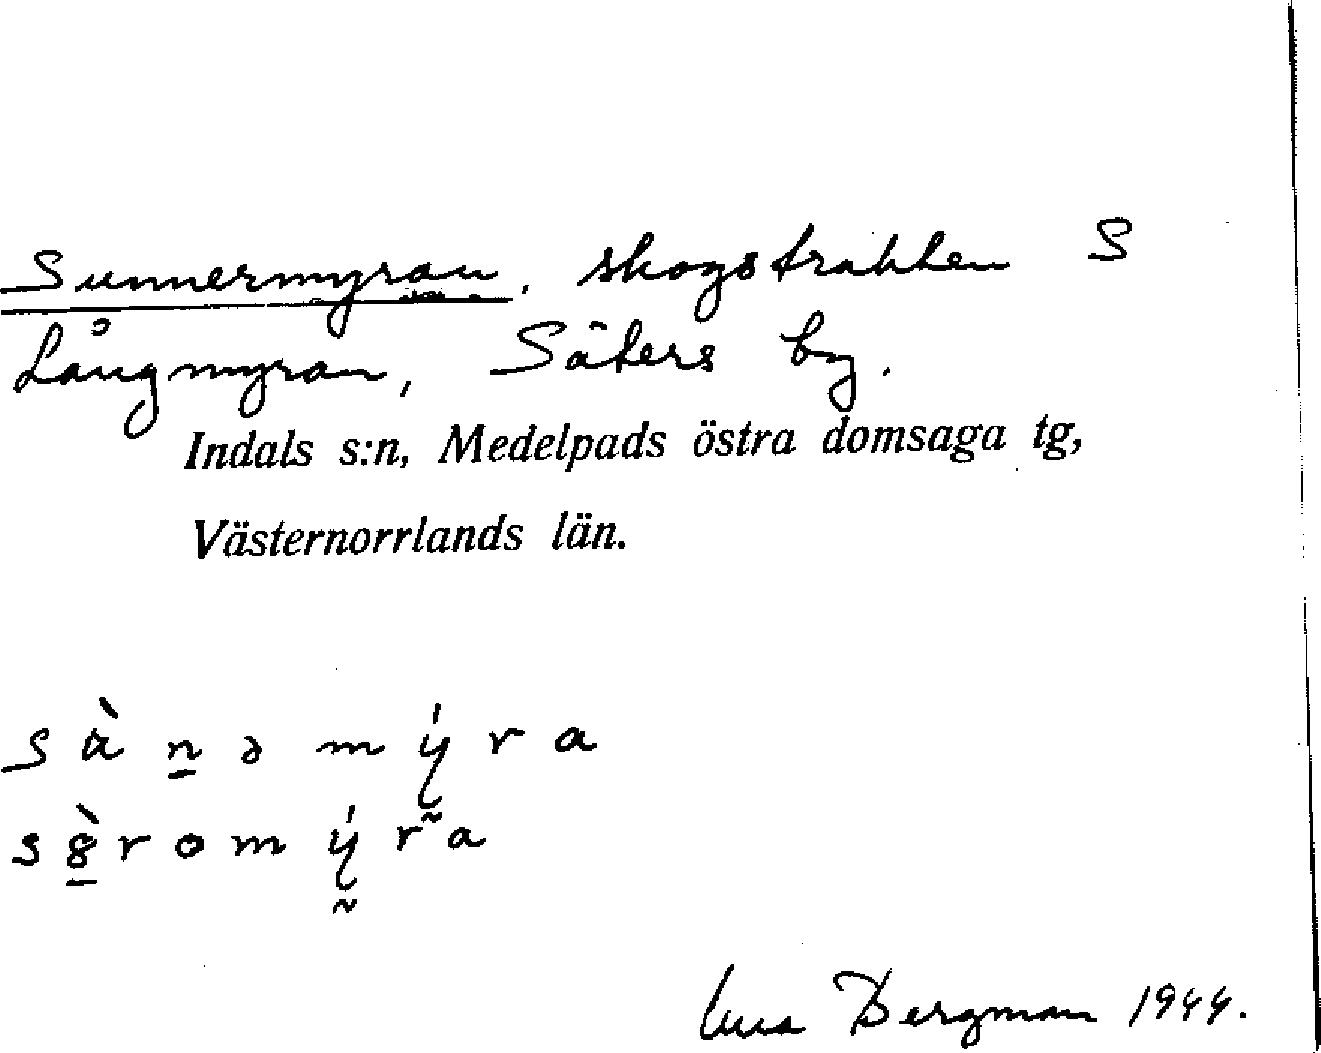 Sunnermyran, skogstrakten S
Långmyran, Säters by.
Indals s:n, Medelpads östra domsaga tg,
Västernorrlands län.
Bergman 1944.